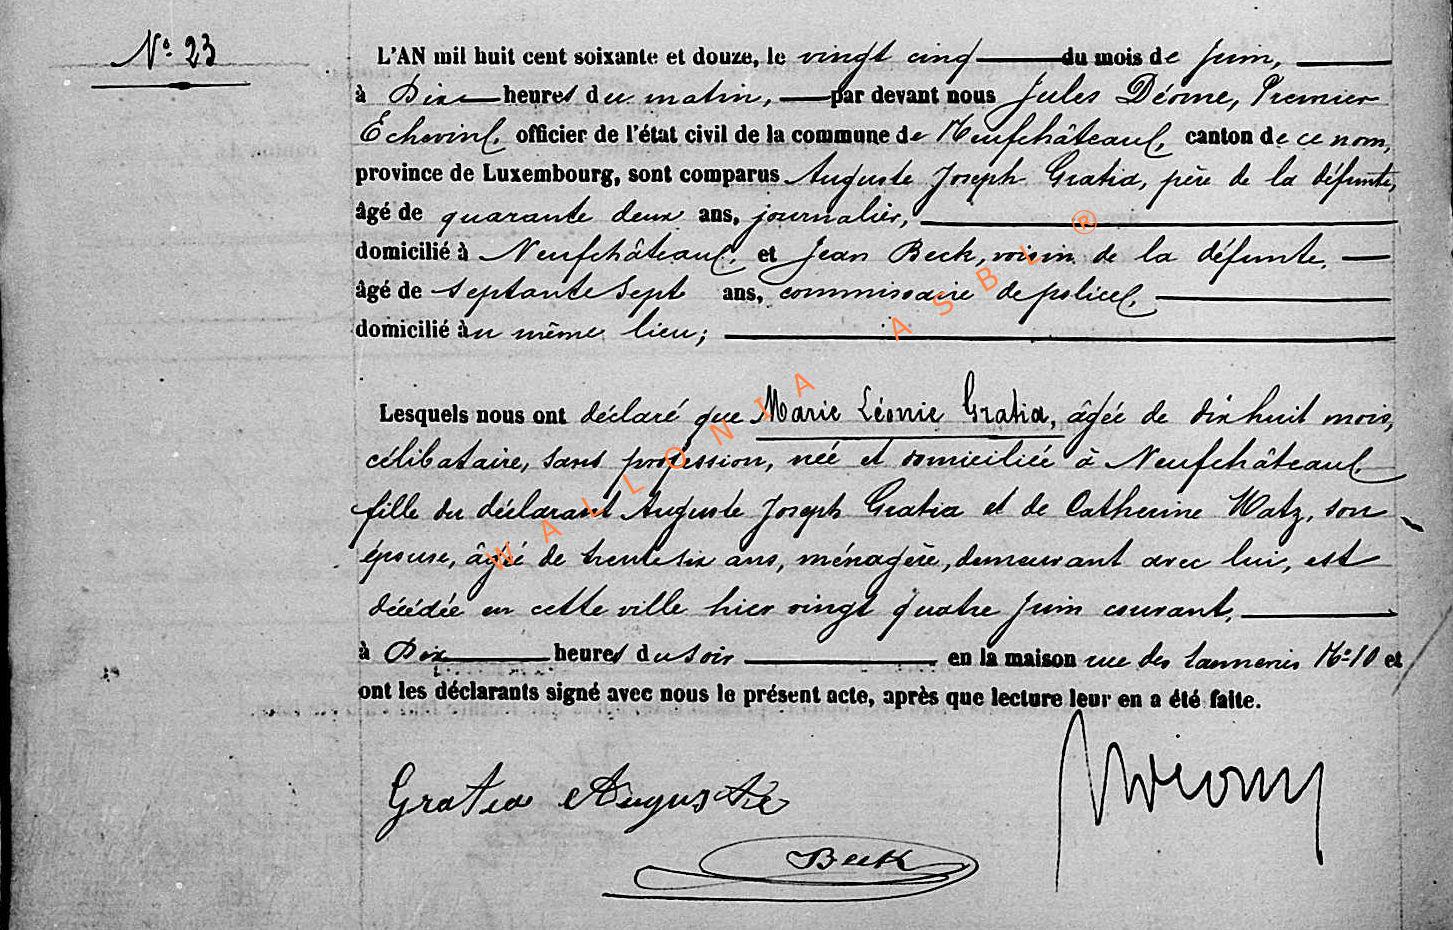 N° 23
L'AN mil huit cent soixante et douze, le vingt cinq du mois de Juin,
à Dix heures du matin, par devant nous Jules Déome, Premier
Echevin, officier de l'état civil de la commune de Neufchâteau, canton de ce nom,
province de Luxembourg, sont comparus Auguste Joseph Gratia, père de la défunte,
âgé de quarante deux ans, journalier,
domicilié à Neufchâteau, et Jean Beck, voisin de la défunte,
âgé de septante sept ans, commissaire de police,
domicilié au même lieu;
Lesquels nous ont déclaré que Marie Léonie Gratia, âgée de dix huit mois,
célibataire, sans profession, née et domiciliée à Neufchâteau
fille du déclarant Auguste Joseph Gratia et de Catherine Watz, son
épouse, âgée de trente six ans, ménagère, demeurant avec lui, est
décédée en cette ville hier vingt quatre Juin courant,
à Dix heures du soir en la maison rue des tanneries N° 10 et
ont les déclarants signé avec nous le présent acte, après que lecture leur en a été faite.
Gratia Auguste
Beck
WALLONIA ASBL ®